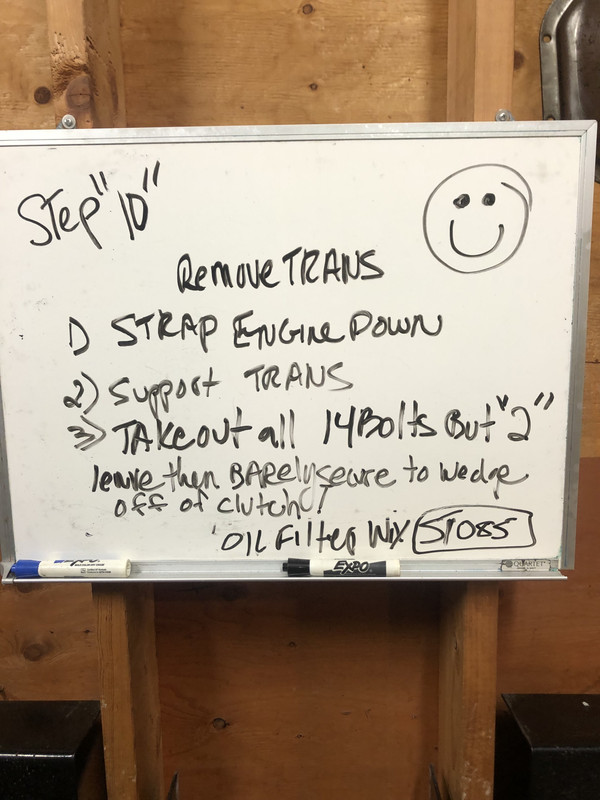 Step "10"
Remove TRANS
1) STRAP ENGINE DOWN
2) Support TRANS
3) TAKE out all 14 Bolts But "2"
leave then BARELY secure to wedge
off of clutch!
OIL FILTER WIX 51085
EXPO
EXPO
QUARTET